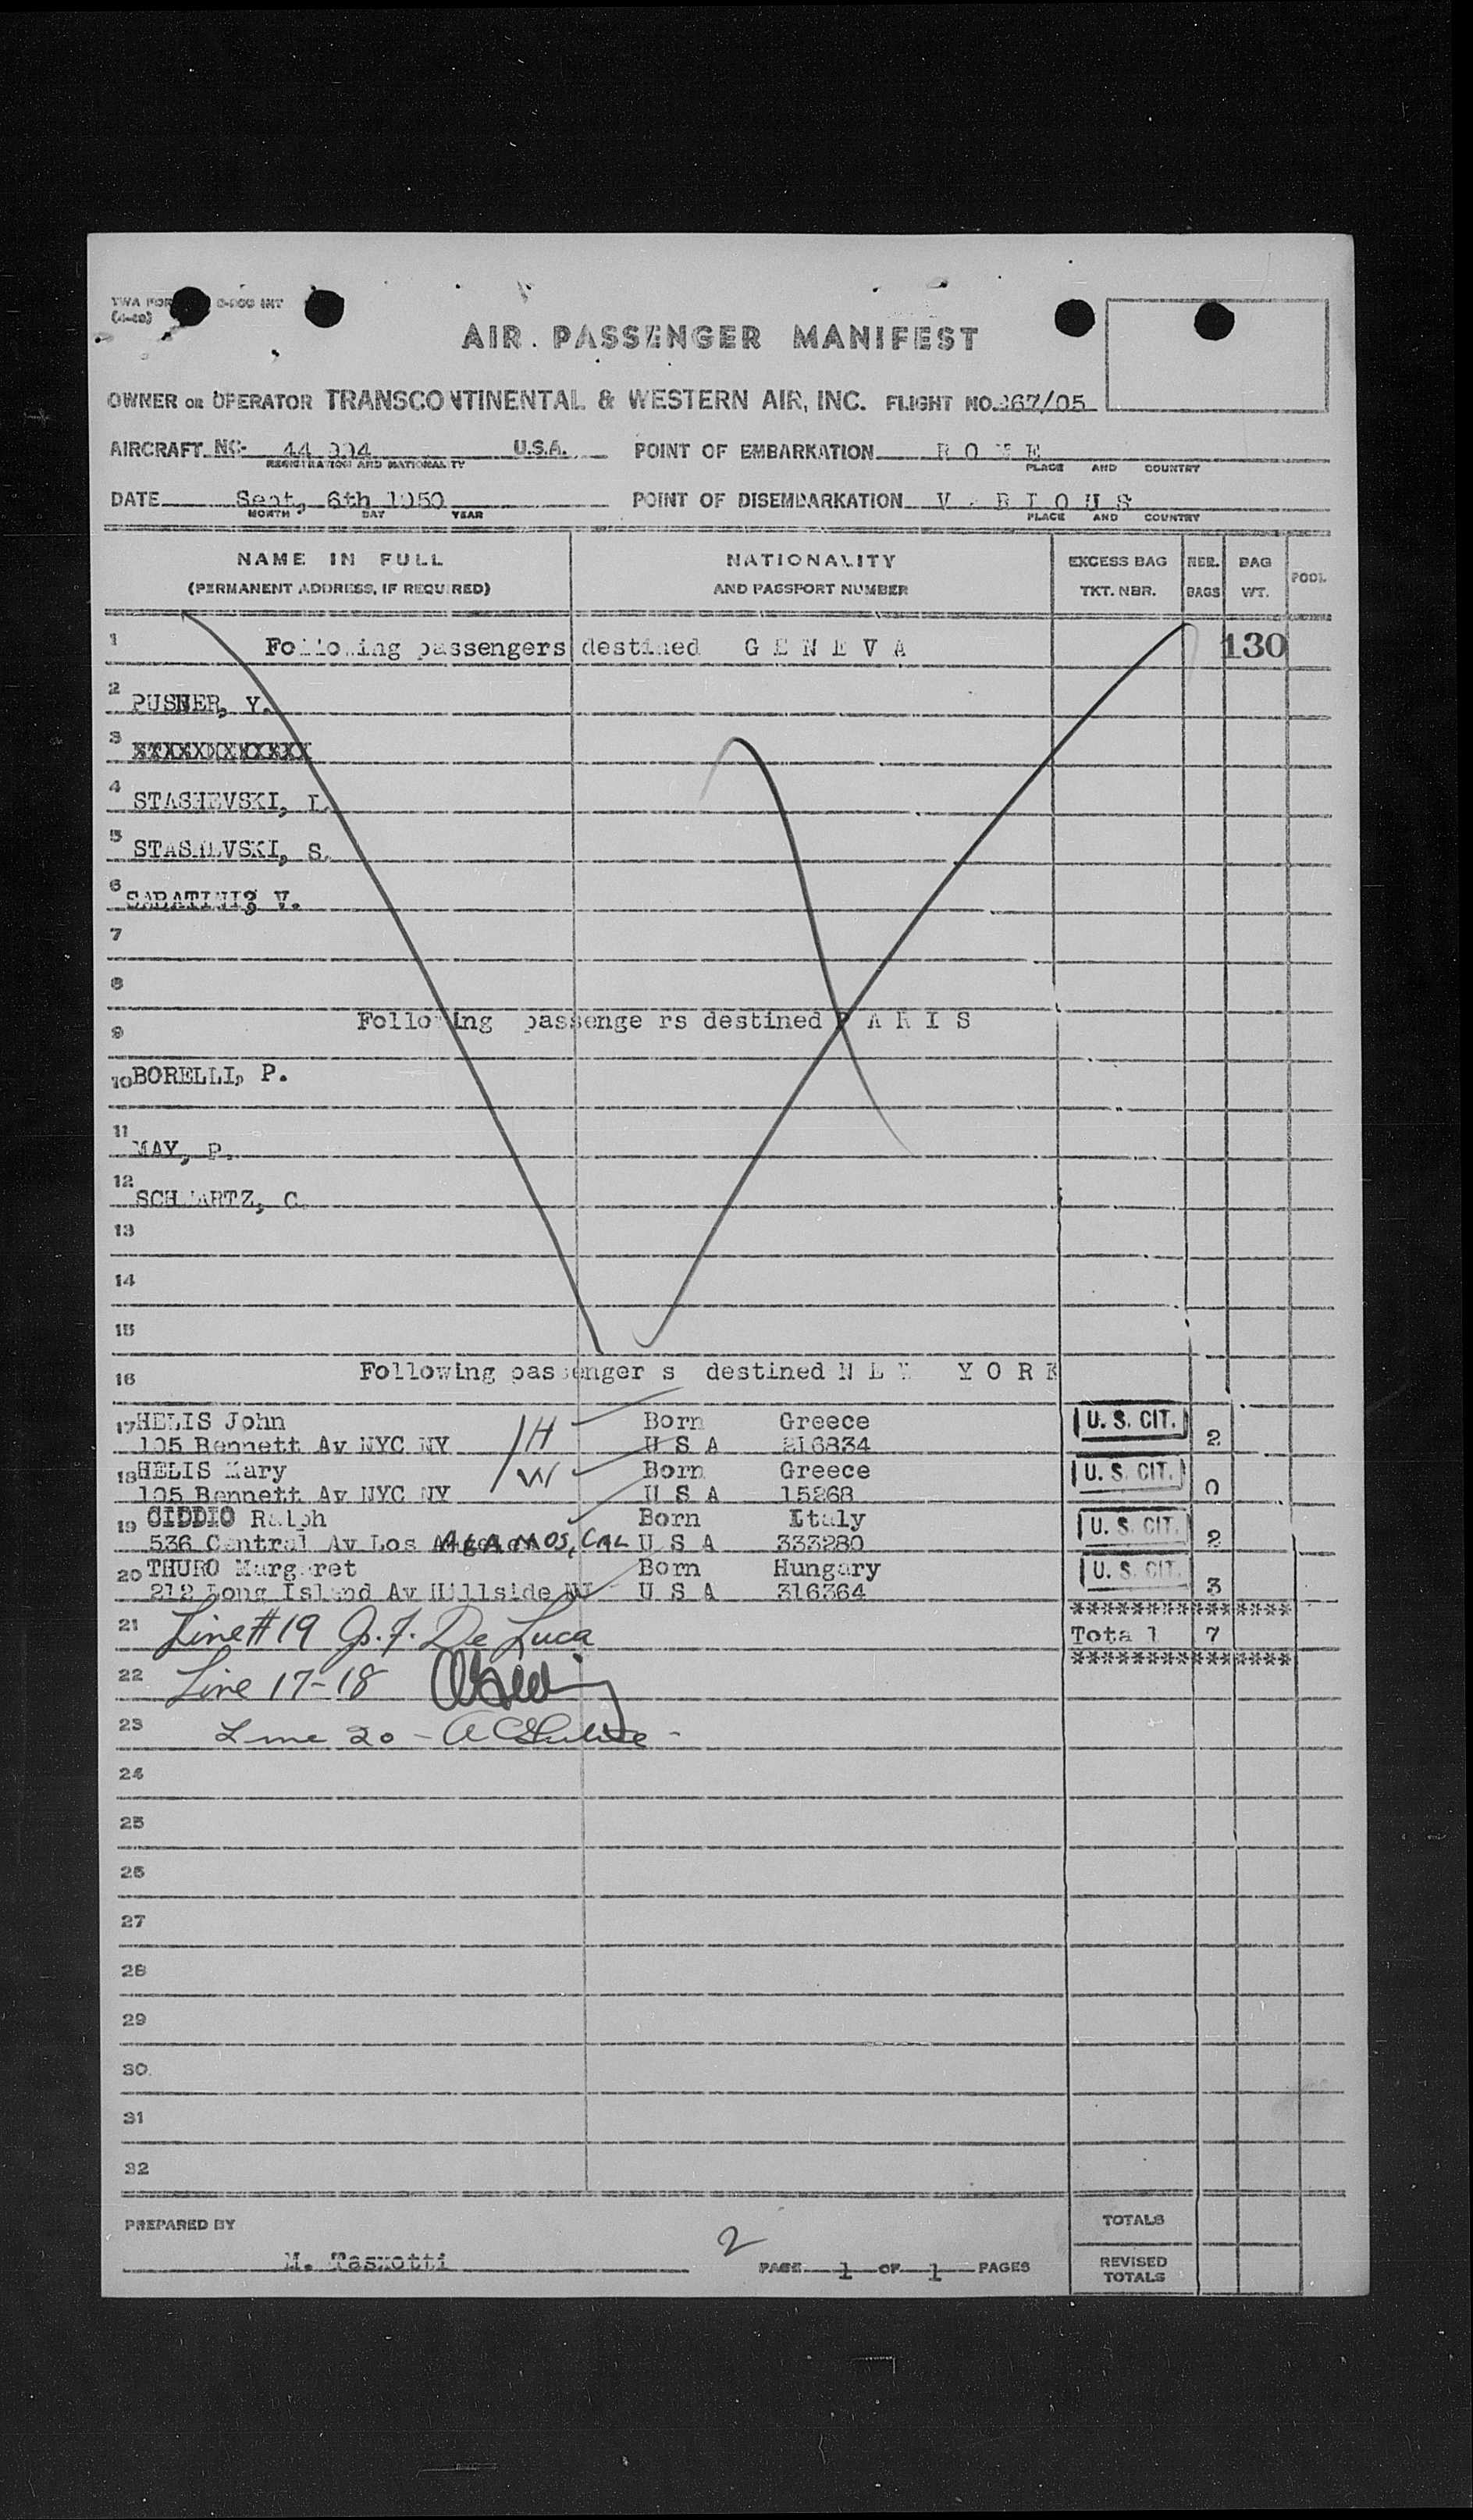 TWA FOR
(4-49)
AIR PASSENGER MANIFEST
OWNER OR OPERATOR TRANSCONTINENTAL & WESTERN AIR, INC. FLIGHT NO. 967/05
AIRCRAFT NO. 44 994 U.S.A. POINT OF EMBARKATION R O M E
REGISTRATION AND NATIONALITY PLACE AND COUNTRY
DATE Sept, 6th 1950 POINT OF DISEMBARKATION V A R I O U S
MONTH DAY YEAR PLACE AND COUNTRY
NAME IN FULL NATIONALITY EXCESS BAG NBR. BAG POOL
(PERMANENT ADDRESS, IF REQUIRED) AND PASSPORT NUMBER TKT. NBR. BAGS WT.
1 Following passengers destined G E N E V A 130
2 PUSNER, Y.
3
4 STASHEVSKI, I.
5 STASHEVSKI, S.
6 SABATINI, V.
7
8
9 Following passenge rs destined P A R I S
10 BORELLI, P.
11 MAY, P.
12 SCHWARTZ, C.
13
14
15
16 Following passenger s destined N E W Y O R K
17 HELIS John /H Born Greece U. S. CIT.
105 Bennett Av NYC NY U S A 216834 2
18 HELIS Mary /W Born Greece U. S. CIT.
105 Bennett Av NYC NY U S A 15268 0
19 CIDDIO Ralph Born Italy U. S. CIT.
536 Central Av Los ALAMOS, CAL U S A 333280 2
20 THURO Margaret Born Hungary U. S. CIT.
212 Long Island Av Hillside NJ U S A 316364 3
***************
21 Line #19 G. F. De Luca Tota l 7
***************
22 Line 17-18
23 Line 20 -
24
25
26
27
28
29
30
31
32
PREPARED BY TOTALS
M. Tasnotti 2 PAGE 1 OF 1 PAGES REVISED TOTALS